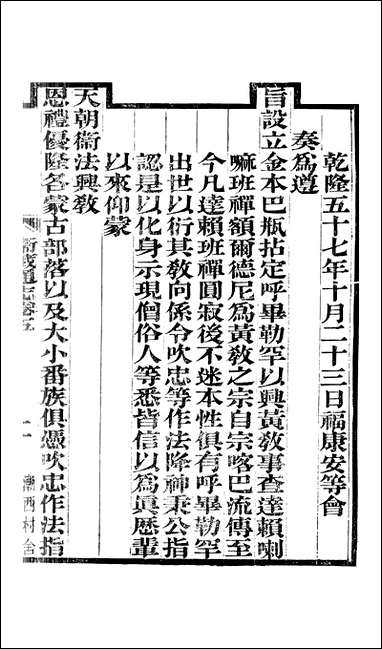 乾隆五十七年十月二十三日福康安等會
奏為遵
旨設立金本巴瓶拈定呼畢勒罕以興黃教事查達賴喇
嘛班禪額爾德尼為黃教之宗自宗喀巴流傳至
今凡達賴班禪圓寂後不迷本性俱有呼畢勒罕
出世以衍其教向係令吹忠等作法降神秉公指
認是以化身示現僧俗人等悉皆信以為眞歷輩
以來仰蒙
天朝衞法興教
恩禮優隆各蒙古部落以及大小番族俱憑吹忠作法指
衞藏通志卷五
二
漸西村舍